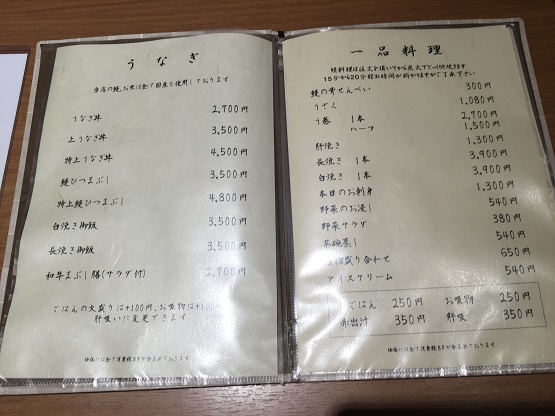 うなぎ
当店の鰻、お米は全て国産を使用しております
うなぎ丼 2,700円
上うなぎ丼 3,500円
特上うなぎ丼 4,500円
鰻ひつまぶし 3,500円
特上鰻ひつまぶし 4,800円
白焼き御飯 3,500円
長焼き御飯 3,500円
和牛まぶし膳(サラダ付) 2,900円
ごはんの大盛りは+100円、お吸物は+100円
肝吸いに変更できます
価格には全て消費税8%が含まれております
一品料理
鰻料理は注文を頂いてから炭火でじっくり焼きます
15分から20分程お時間が掛かりますがご了承下さい
鰻の骨せんべい 300円
うざく 1,080円
う巻 1本 2,700円
ハーフ 1,500円
肝焼き 1,300円
長焼き 1本 3,900円
白焼き 1本 3,900円
本日のお刺身 1,300円
野菜のお浸し 540円
野菜サラダ 380円
茶碗蒸し 540円
盛り合わせ 650円
アイスクリーム 540円
ごはん 250円 お吸物 250円
赤出汁 350円 肝吸 350円
価格には全て消費税8%が含まれております